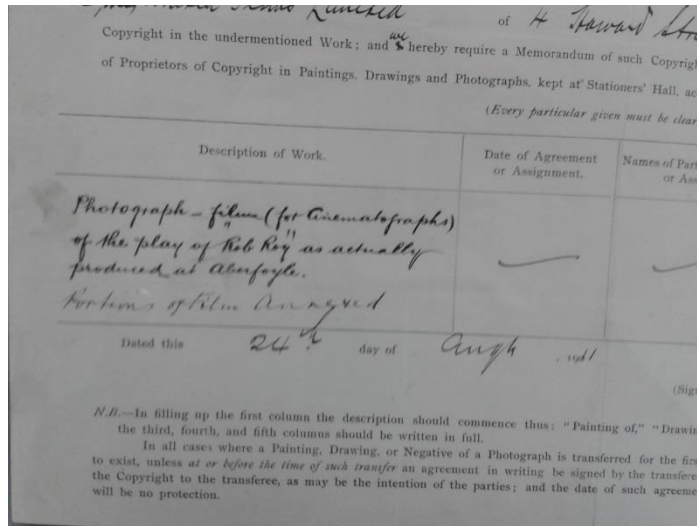 Limited of 4 Howard
Copyright in the undermentioned Work; and we hereby require a Memorandum of such Copyrigh
of Proprietors of Copyright in Paintings, Drawings and Photographs, kept at Stationers' Hall, ac
(Every particular given must be clear
Description of Work.
Date of Agreement
or Assignment.
Names of Part
or Ass
Photograph - film (for Cinematographs)
of the play of "Rob Roy" as actually
produced at Aberfoyle.
Portions of Film Annexed
Dated this 24th day of Augt, 1911
(Sign
N.B.—In filling up the first column the description should commence thus: "Painting of," "Drawin
the third, fourth, and fifth columns should be written in full.
In all cases where a Painting, Drawing, or Negative of a Photograph is transferred for the firs
to exist, unless at or before the time of such transfer an agreement in writing be signed by the transfere
the Copyright to the transferee, as may be the intention of the parties; and the date of such agreeme
will be no protection.